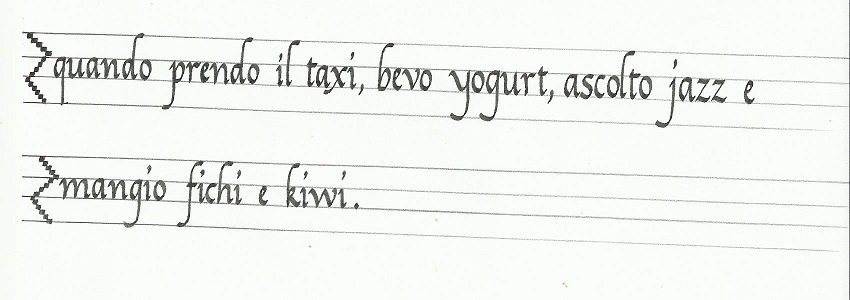 quando prendo il taxi, bevo yogurt, ascolto jazz e
mangio fichi e kiwi.